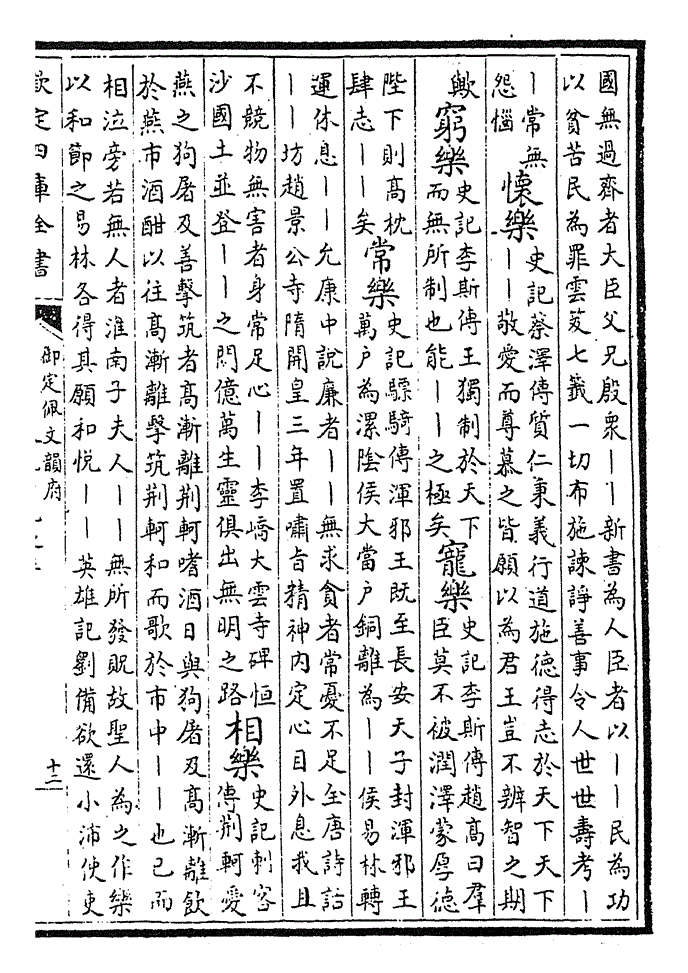 國無過齊者大臣父兄殷衆｜｜新書為人臣者以｜｜民為功
以貧苦民為罪雲笈七籤一切布施諫諍善事令人世世壽考｜
｜常無
怨惱
懷樂
史記蔡澤傳質仁秉義行道施德得志於天下天下
｜｜敬愛而尊慕之皆願以為君王豈不辨智之期
歟
窮樂
史記李斯傳王獨制於天下
而無所制也能｜｜之極矣
寵樂
史記李斯傳趙髙曰羣
臣莫不被潤澤蒙厚德
陛下則髙枕
肆志｜｜矣
常樂
史記驃騎傳渾邪王既至長安天子封渾邪王
萬户為漯隂侯大當户銅離為｜｜侯易林轉
運休息｜｜允康中說廉者｜｜無求貪者常憂不足全唐詩話
｜｜坊趙景公寺隋開皇三年置嘯旨精神内定心目外息我且
不競物無害者身常足心｜｜李嶠大雲寺碑恒
沙國土並登｜｜之閎億萬生靈俱出無明之路
相樂
史記刺客
傳荆軻愛
燕之狗屠及善擊筑者髙漸離荆軻嗜酒日與狗屠及髙漸離飲
於燕市酒酣以往髙漸離擊筑荆軻和而歌於市中｜｜也已而
相泣旁若無人者淮南子夫人｜｜無所發貺故聖人為之作樂
以和節之易林各得其願和悦｜｜英雄記劉備欲還小沛使吏
欽定四庫全書
御定佩文韻府
十二